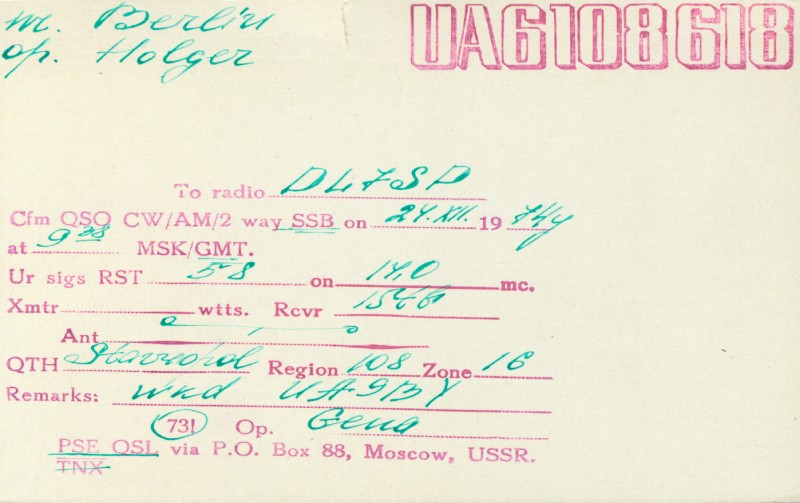 nr. Berlin
op. Holger
UA6108618
To radio DL7SP
Cfm QSO CW/AM/2 way SSB on 24.XII. 19 74y
at 9 38 MSK/GMT.
Ur sigs RST 58 on 14,0 mc.
Xmtr wtts. Rcvr
Ant
QTH Stavropol Region 108 Zone 16
Remarks: wkd UA9BY
73! Op. Gena
PSE QSL via P.O. Box 88, Moscow, USSR.
TNX